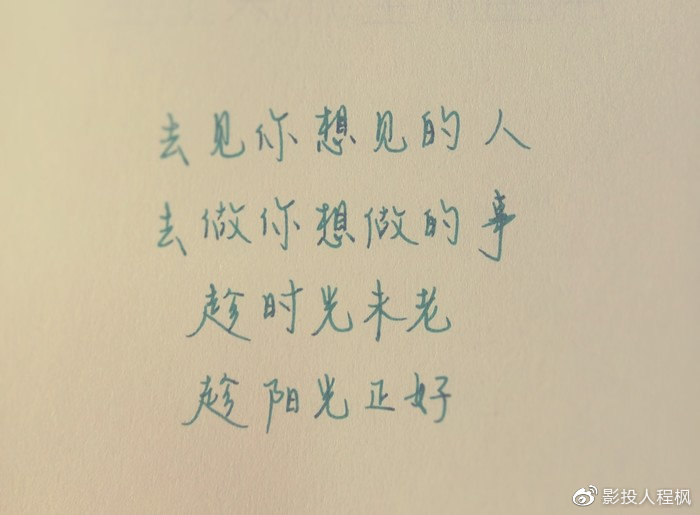 去见你想见的人
去做你想做的事
趁时光未老
趁阳光正好
@影投人程枫